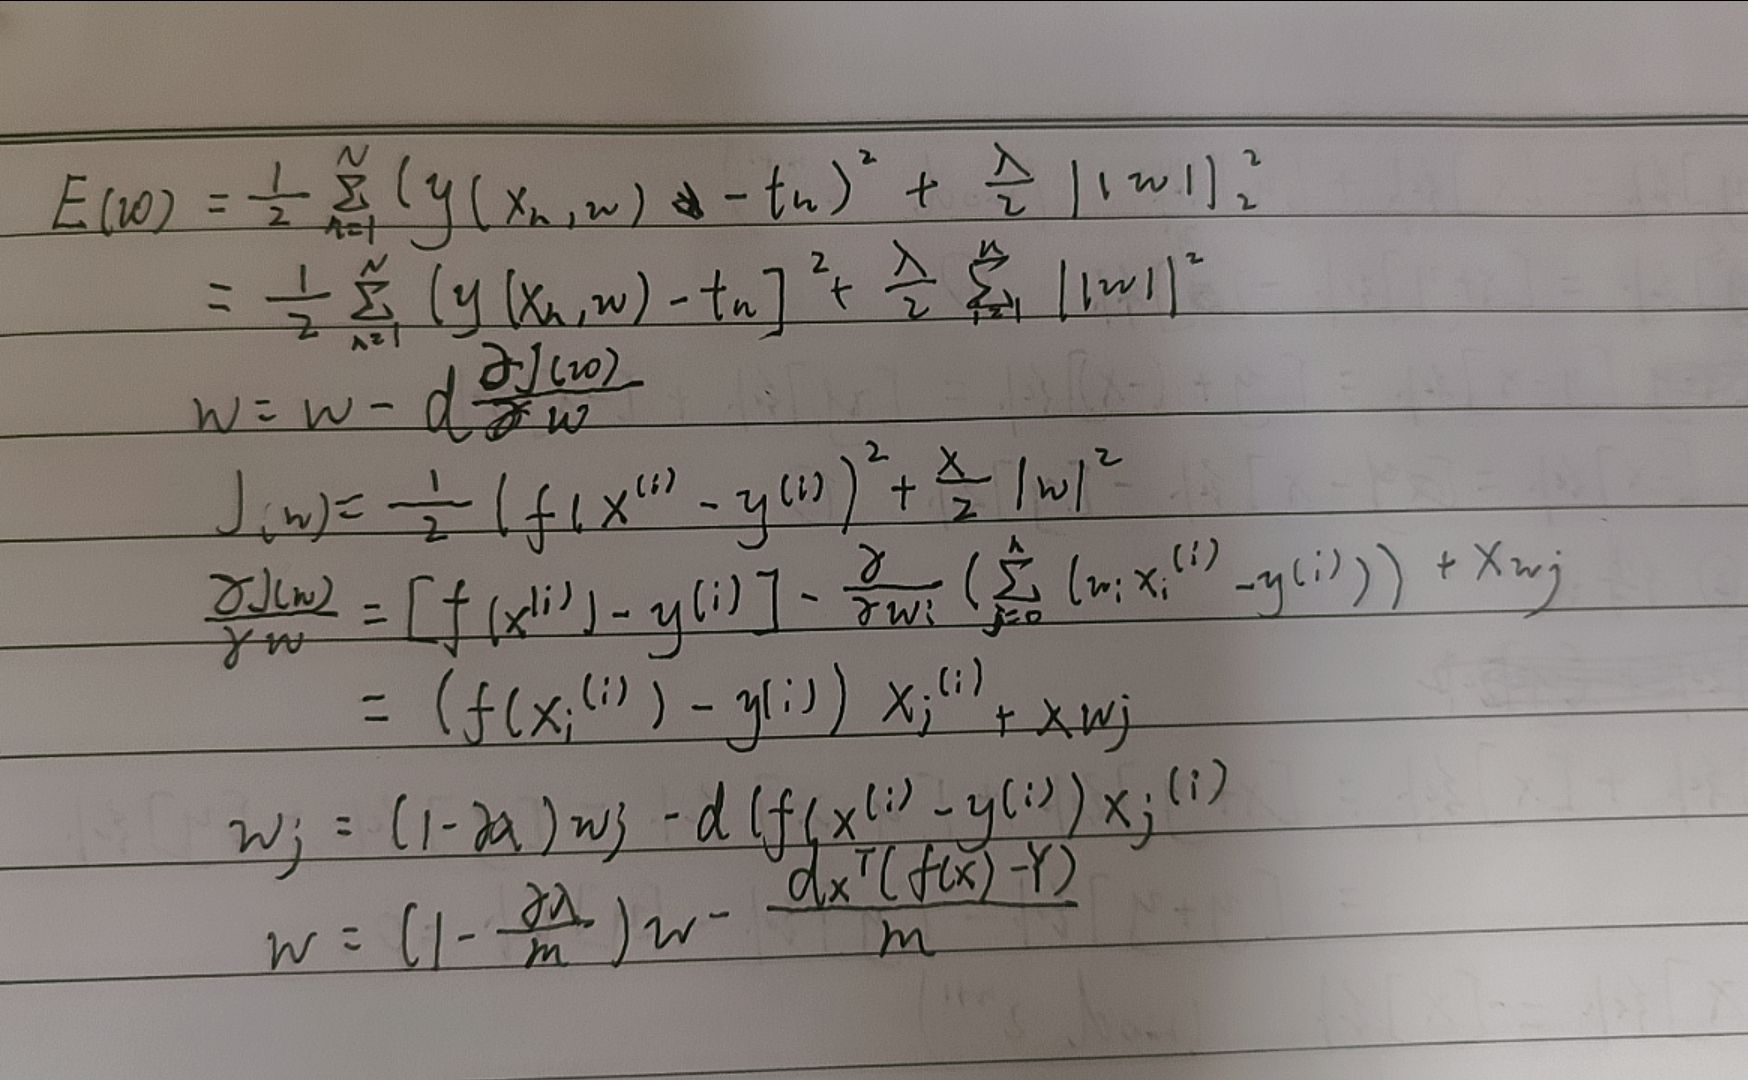 E(w) = 1/2 Σ_{n=1}^{N} (y(x_n, w) - t_n)^2 + λ/2 ||w||_2^2
= 1/2 Σ_{n=1}^{N} (y(x_n, w) - t_n]^2 + λ/2 Σ_{i=1}^{n} ||w||^2
w = w - d ∂J(w)/∂w
J(w) = 1/2 (f(x^(i) - y^(i))^2 + x/2 |w|^2
∂J(w)/∂w = [f(x^(i)) - y^(i)] - ∂/∂w_i (Σ_{j=0}^{n} (w_i x_i^(i) - y^(i))) + x w_j
= (f(x_i^(i)) - y^(i)) x_j^(i) + x w_j
w_j = (1 - ∂λ) w_j - d (f(x^(i) - y^(i)) x_j^(i)
w = (1 - ∂λ/m) w - dx^T(f(x) - Y)/m